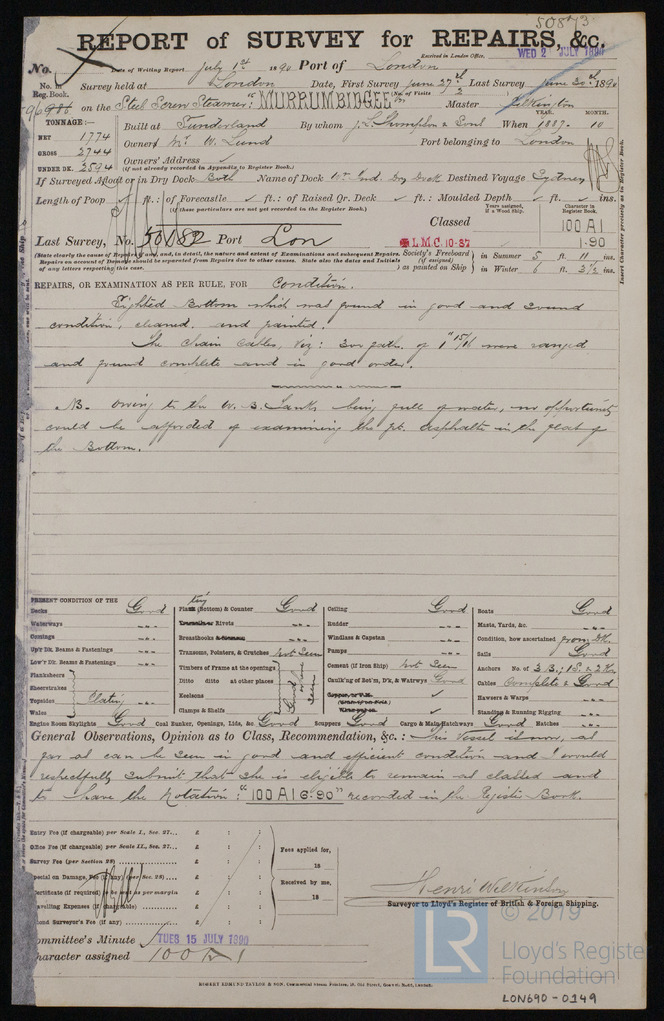 50873
REPORT of SURVEY for REPAIRS, &c.
Received in London Office,
WED 2 JULY 1890
No. Date of Writing Report July 1st 1890 Port of London
No. in Reg. Book. Survey held at London Date, First Survey June 27th Last Survey June 30th 1890
No. of Visits 2
96986 on the Steel Screw Steamer: MURRUMBIDGEE Master
TONNAGE:— YEAR. MONTH.
NET 1774 Built at Sunderland By whom J. L. Thompson & Sons When 1887 - 10
GROSS 2744 Owners W. Lund Port belonging to London
UNDER DK. 2594 Owners' Address
(if not already recorded in Appendix to Register Book.)
If Surveyed Afloat or in Dry Dock Both Name of Dock Wt. Ind. Dry Dock Destined Voyage Sydney
Length of Poop ft.: of Forecastle ft.: of Raised Qr. Deck ft.: Moulded Depth ft. ins.
(If these particulars are not yet recorded in the Register Book.)
Years assigned, if a Wood Ship. Character in Register Book.
Classed 100 A1
1.90
Last Survey, No. 50182 Port Lon LMC 10-87
Society's Freeboard (if assigned) as painted on Ship in Summer 5 ft. 11 ins.
in Winter 6 ft. 2½ ins.
Insert Character precisely as in Register Book.
REPAIRS, OR EXAMINATION AS PER RULE, FOR Condition.
Sighted Bottom which was found in good and sound
condition, cleaned and painted.
The chain Cables, Viz: 300 fath. of 1" 15/16 were ranged
and found complete and in good order.
NB. Owing to the W. B. Tanks being full of water, no opportunity
could be afforded of examining the pt. asphalte in the flat of
the Bottom.
PRESENT CONDITION OF THE
Decks Good
Waterways
Comings
Up'r Dk. Beams & Fastenings
Low'r Dk. Beams & Fastenings
Planksheers
Sheerstrakes
Topsides
Wales
Plating (Bottom) & Counter Good
Rivets
Breasthooks
Transoms, Pointers, & Crutches Not Seen
Timbers of Frame at the openings
Ditto ditto at other places
Keelsons
Clamps & Shelfs
Ceiling Good
Rudder
Windlass & Capstan
Pumps
Cement (if Iron Ship) Not Seen
Caulk'ng of Bot'm, Dk's, & Watrwys Good
Boats Good
Masts, Yards, &c.
Condition, how ascertained from Dk.
Sails Good
Anchors No. of 3 B.; 1 S. & 2 K.
Cables Complete & Good
Hawsers & Warps
Standing & Running Rigging
Engine Room Skylights Good Coal Bunker, Openings, Lids, &c. Good Scuppers Good Cargo & Main Hatchways Good Hatches
General Observations, Opinion as to Class, Recommendation, &c.: This Vessel is now, as
far as can be seen in good and efficient condition and I would
respectfully submit that she is eligible to remain as classed and
to have the Notation: "100 A1 6-90" recorded in the Register Book.
Entry Fee (if chargeable) per Scale I., Sec. 27... £ : :
Office Fee (if chargeable) per Scale II., Sec. 27... £ : :
Survey Fee (per Section 28) £ : :
Special on Damage Fee (if any) (per Sec. 28) £ : :
Certificate (if required) to be sent as per margin
Travelling Expenses (if chargeable) £ : :
Second Surveyor's Fee (if any) £ : :
Fees applied for,
18
Received by me,
18
Henri Wilkinson
Surveyor to Lloyd's Register of British & Foreign Shipping.
Committee's Minute TUES 15 JULY 1890
Character assigned 100 A 1
© 2019
LR
Lloyd's Register
Foundation
LON690-0149